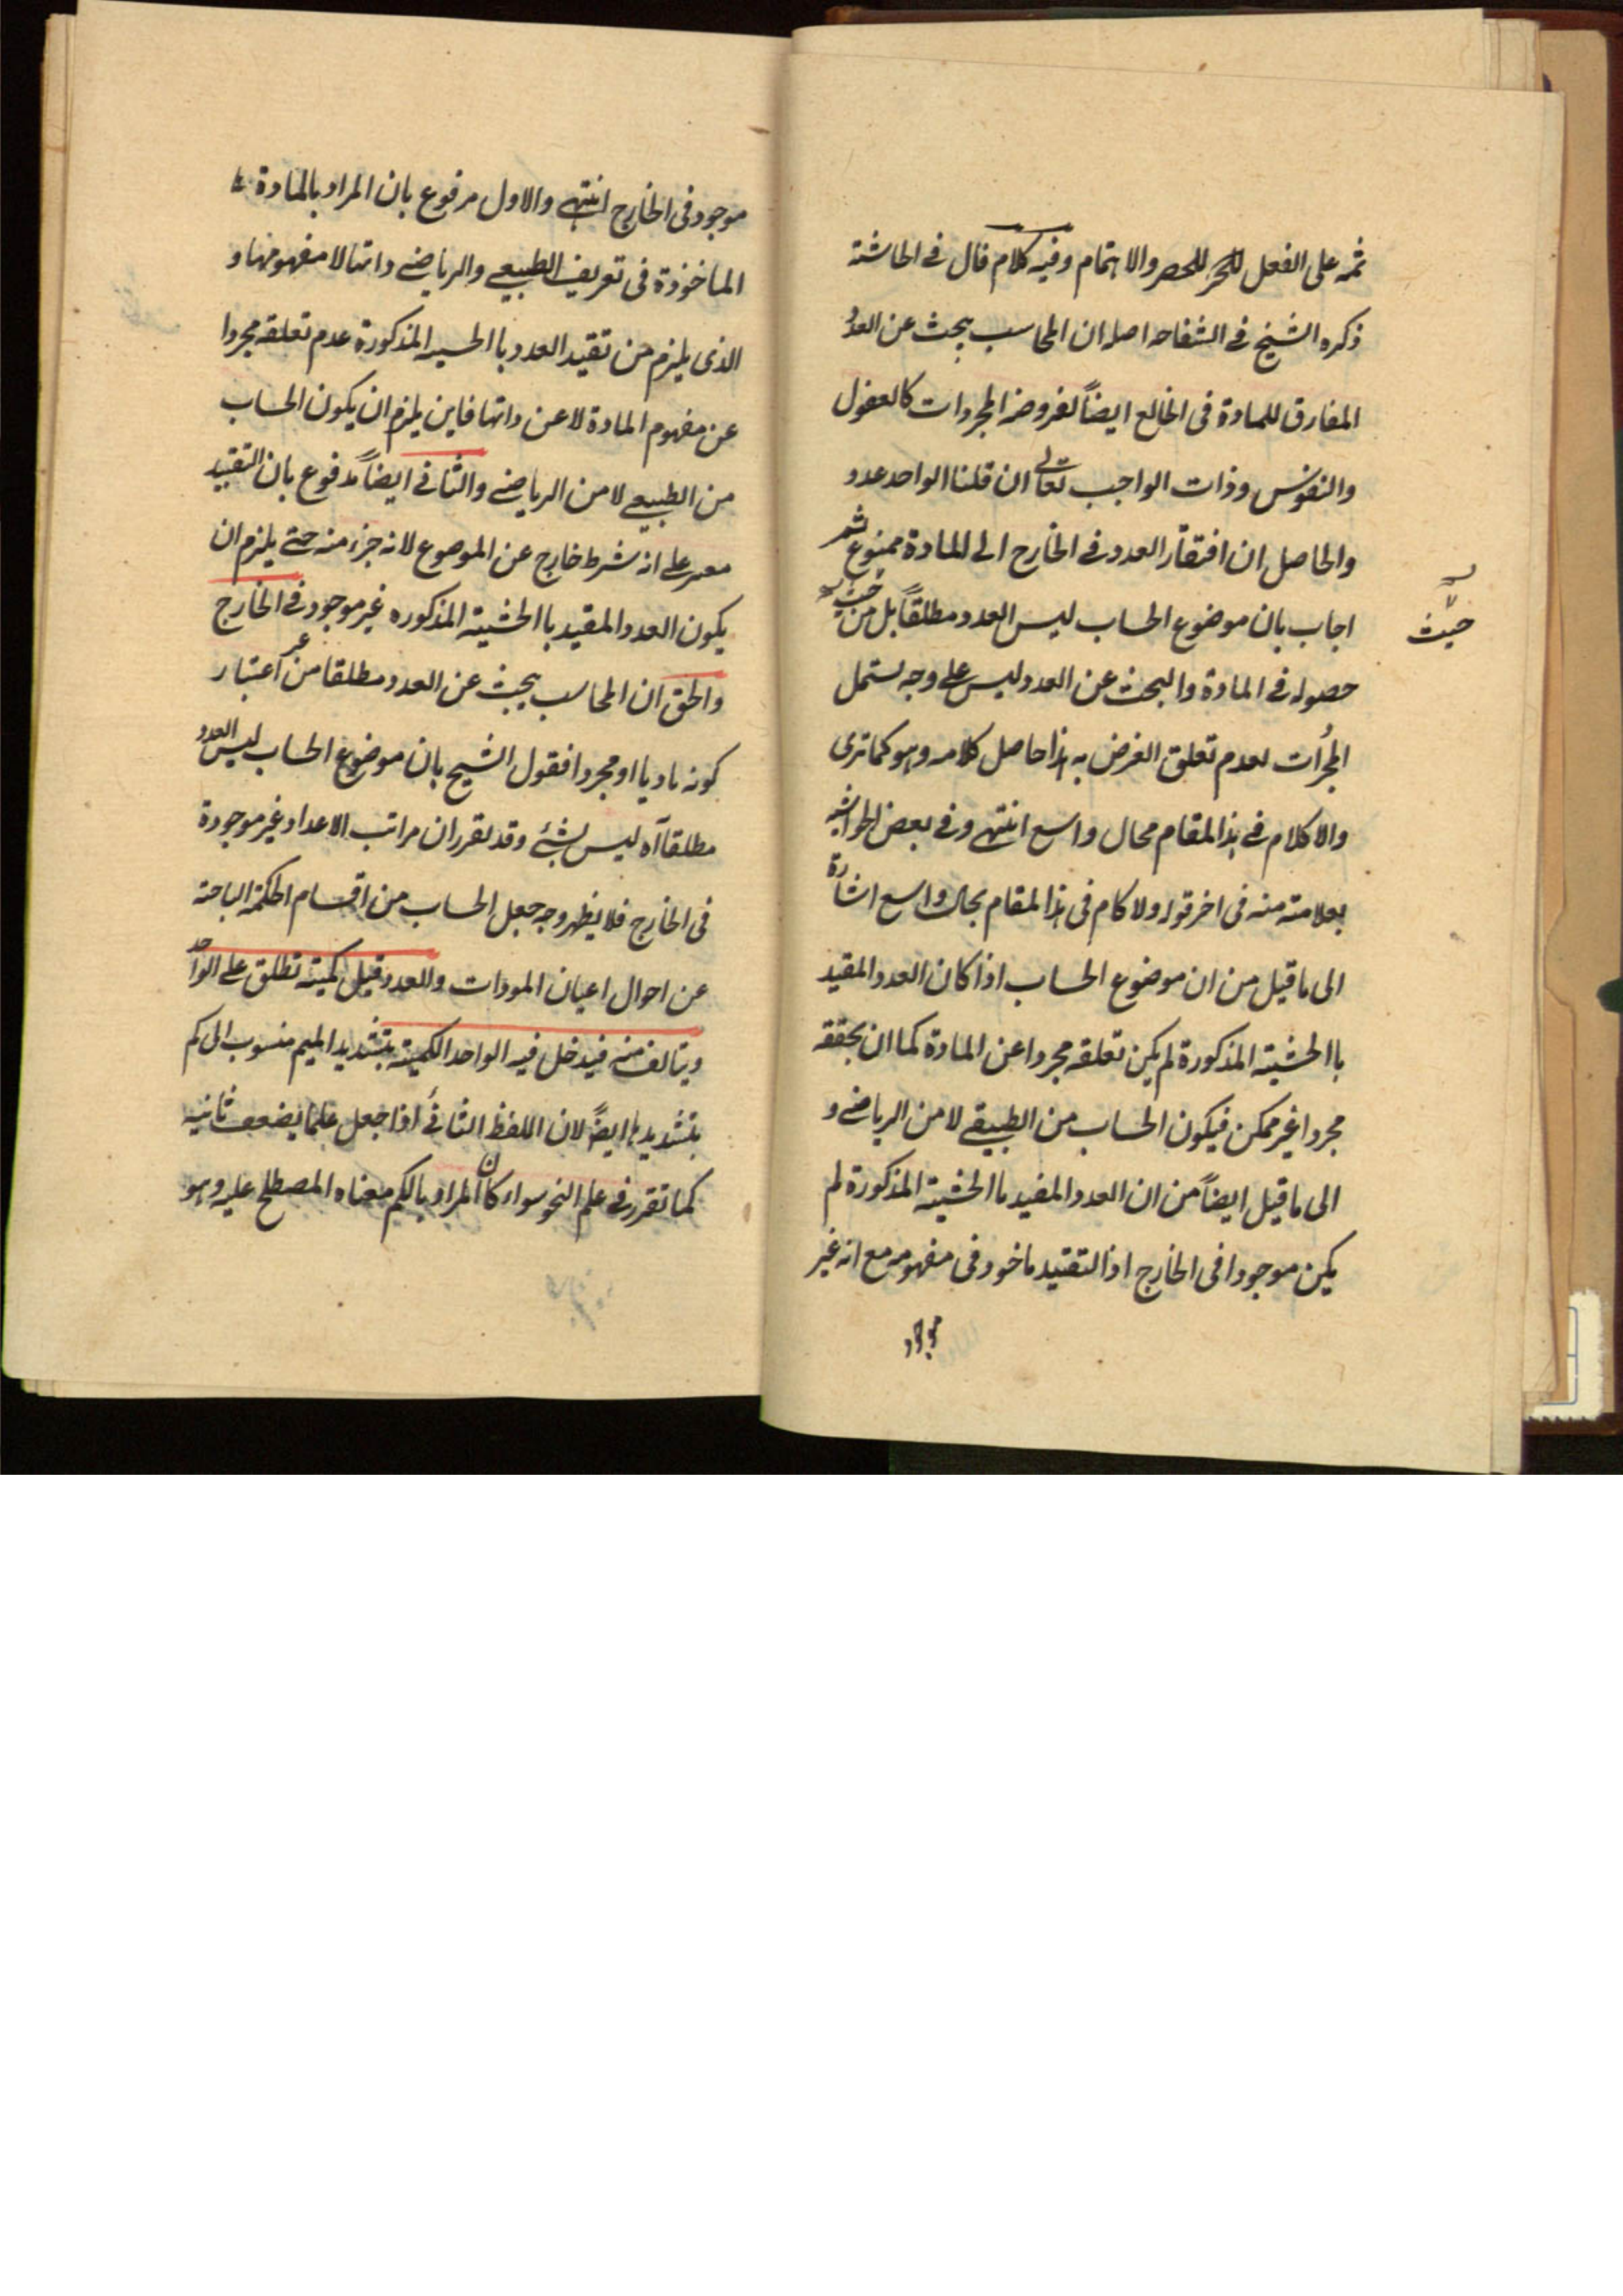 ثمه على الفعل للحصر والاهتمام وفيه كلام قال فى الحاشية
ذكره الشيخ فى الشفا حاصله ان المحاسب يبحث عن العدد
المفارق للمادة فى الخارج ايضاً لعروضه المجردات كالعقول
والنفوس وذات الواجب تعالى ان قلنا الواحد عدد
والحاصل ان افتقار العدد فى الخارج الى المادة ممنوع ثم
اجاب بان موضوع الحساب ليس العدد مطلقاً بل من حيث
حيث
حصوله فى المادة والبحث عن العدد ليس على وجه يشتمل
المجرات لعدم تعلق الغرض به هذا حاصل كلامه وهو كما ترى
والا كلام فى هذا المقام مجال واسع انتهى وفى بعض الحواشى
بعلامة منه فى اخر قوله ولا كام فى هذا المقام مجال واسع اشارة
الى ما قيل من ان موضوع الحساب اذا كان العدد المقيد
باالحيثية المذكورة لم يكن تعلقه مجردا عن المادة كما ان تحققه
مجردا غير ممكن فيكون الحساب من الطبيقى لا من الرياضى و
الى ما قيل ايضاً من ان العدد المقيد باالحيثية المذكورة لم
يكن موجودا فى الخارج اذ التقييد ماخود فى مفهومه مع انه غير
موجود
موجود فى الخارج انتهى والاول مرفوع بان المراد بالمادة
الماخوذة فى تعريف الطبيعى والرياضى داتها لا مفهومها و
الذى يلزم من تقيد العدد باالحسيه المذكورة عدم تعلقه مجردا
عن مفهوم المادة لا عن داتها فاين يلزم ان يكون الحساب
من الطبيعى لا من الرياضى والثانى ايضاً مدفوع بان التقييد
معسر على انه شرط خارج عن الموصوع لانه جزء منه حتى يلزم ان
يكون العدد المقيد باالحثيية المذكوره غير موجود فى الخارج
والحق ان المحاسب يبحث عن العدد مطلقا من غير اعتبار
كونه ماديا او مجردا فقول الشيخ بان موضوع الحساب ليس العدد
مطلقا آه ليس بشئ وقد تقرر ان مراتب الاعداد غير موجودة
فى الخارج فلا يظهر وجه جعل الحساب من اقسام الحكمة الباحثة
عن احوال اعيان المودات والعدد قيل كمية تطلق على الواحد
ويتالف منه فيدخل فيه الواحد الكمية بتشديد الميم منسوب الى كم
بتشديدها ايضاً لان اللفظ الثنائى اذا جعل علما يضعف ثانيه
كما تقرر فى علم النحو سواء كان المراد بالكم معناه المصطلح عليه وهو